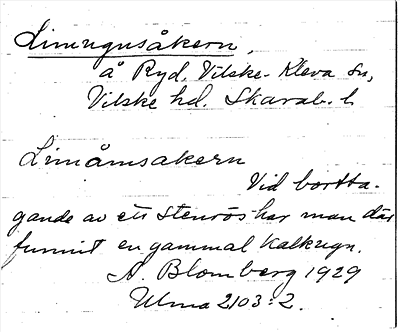 Limugnsåkern,
å Ryd, Vilske-Kleva sn,
Vilske hd. Skarab. l.
Limåmsakern
Vid bortta-
gande av ett stenrös har man där
funnit en gammal kalkugn.
A. Blomberg 1929
Ulma 2103:2.